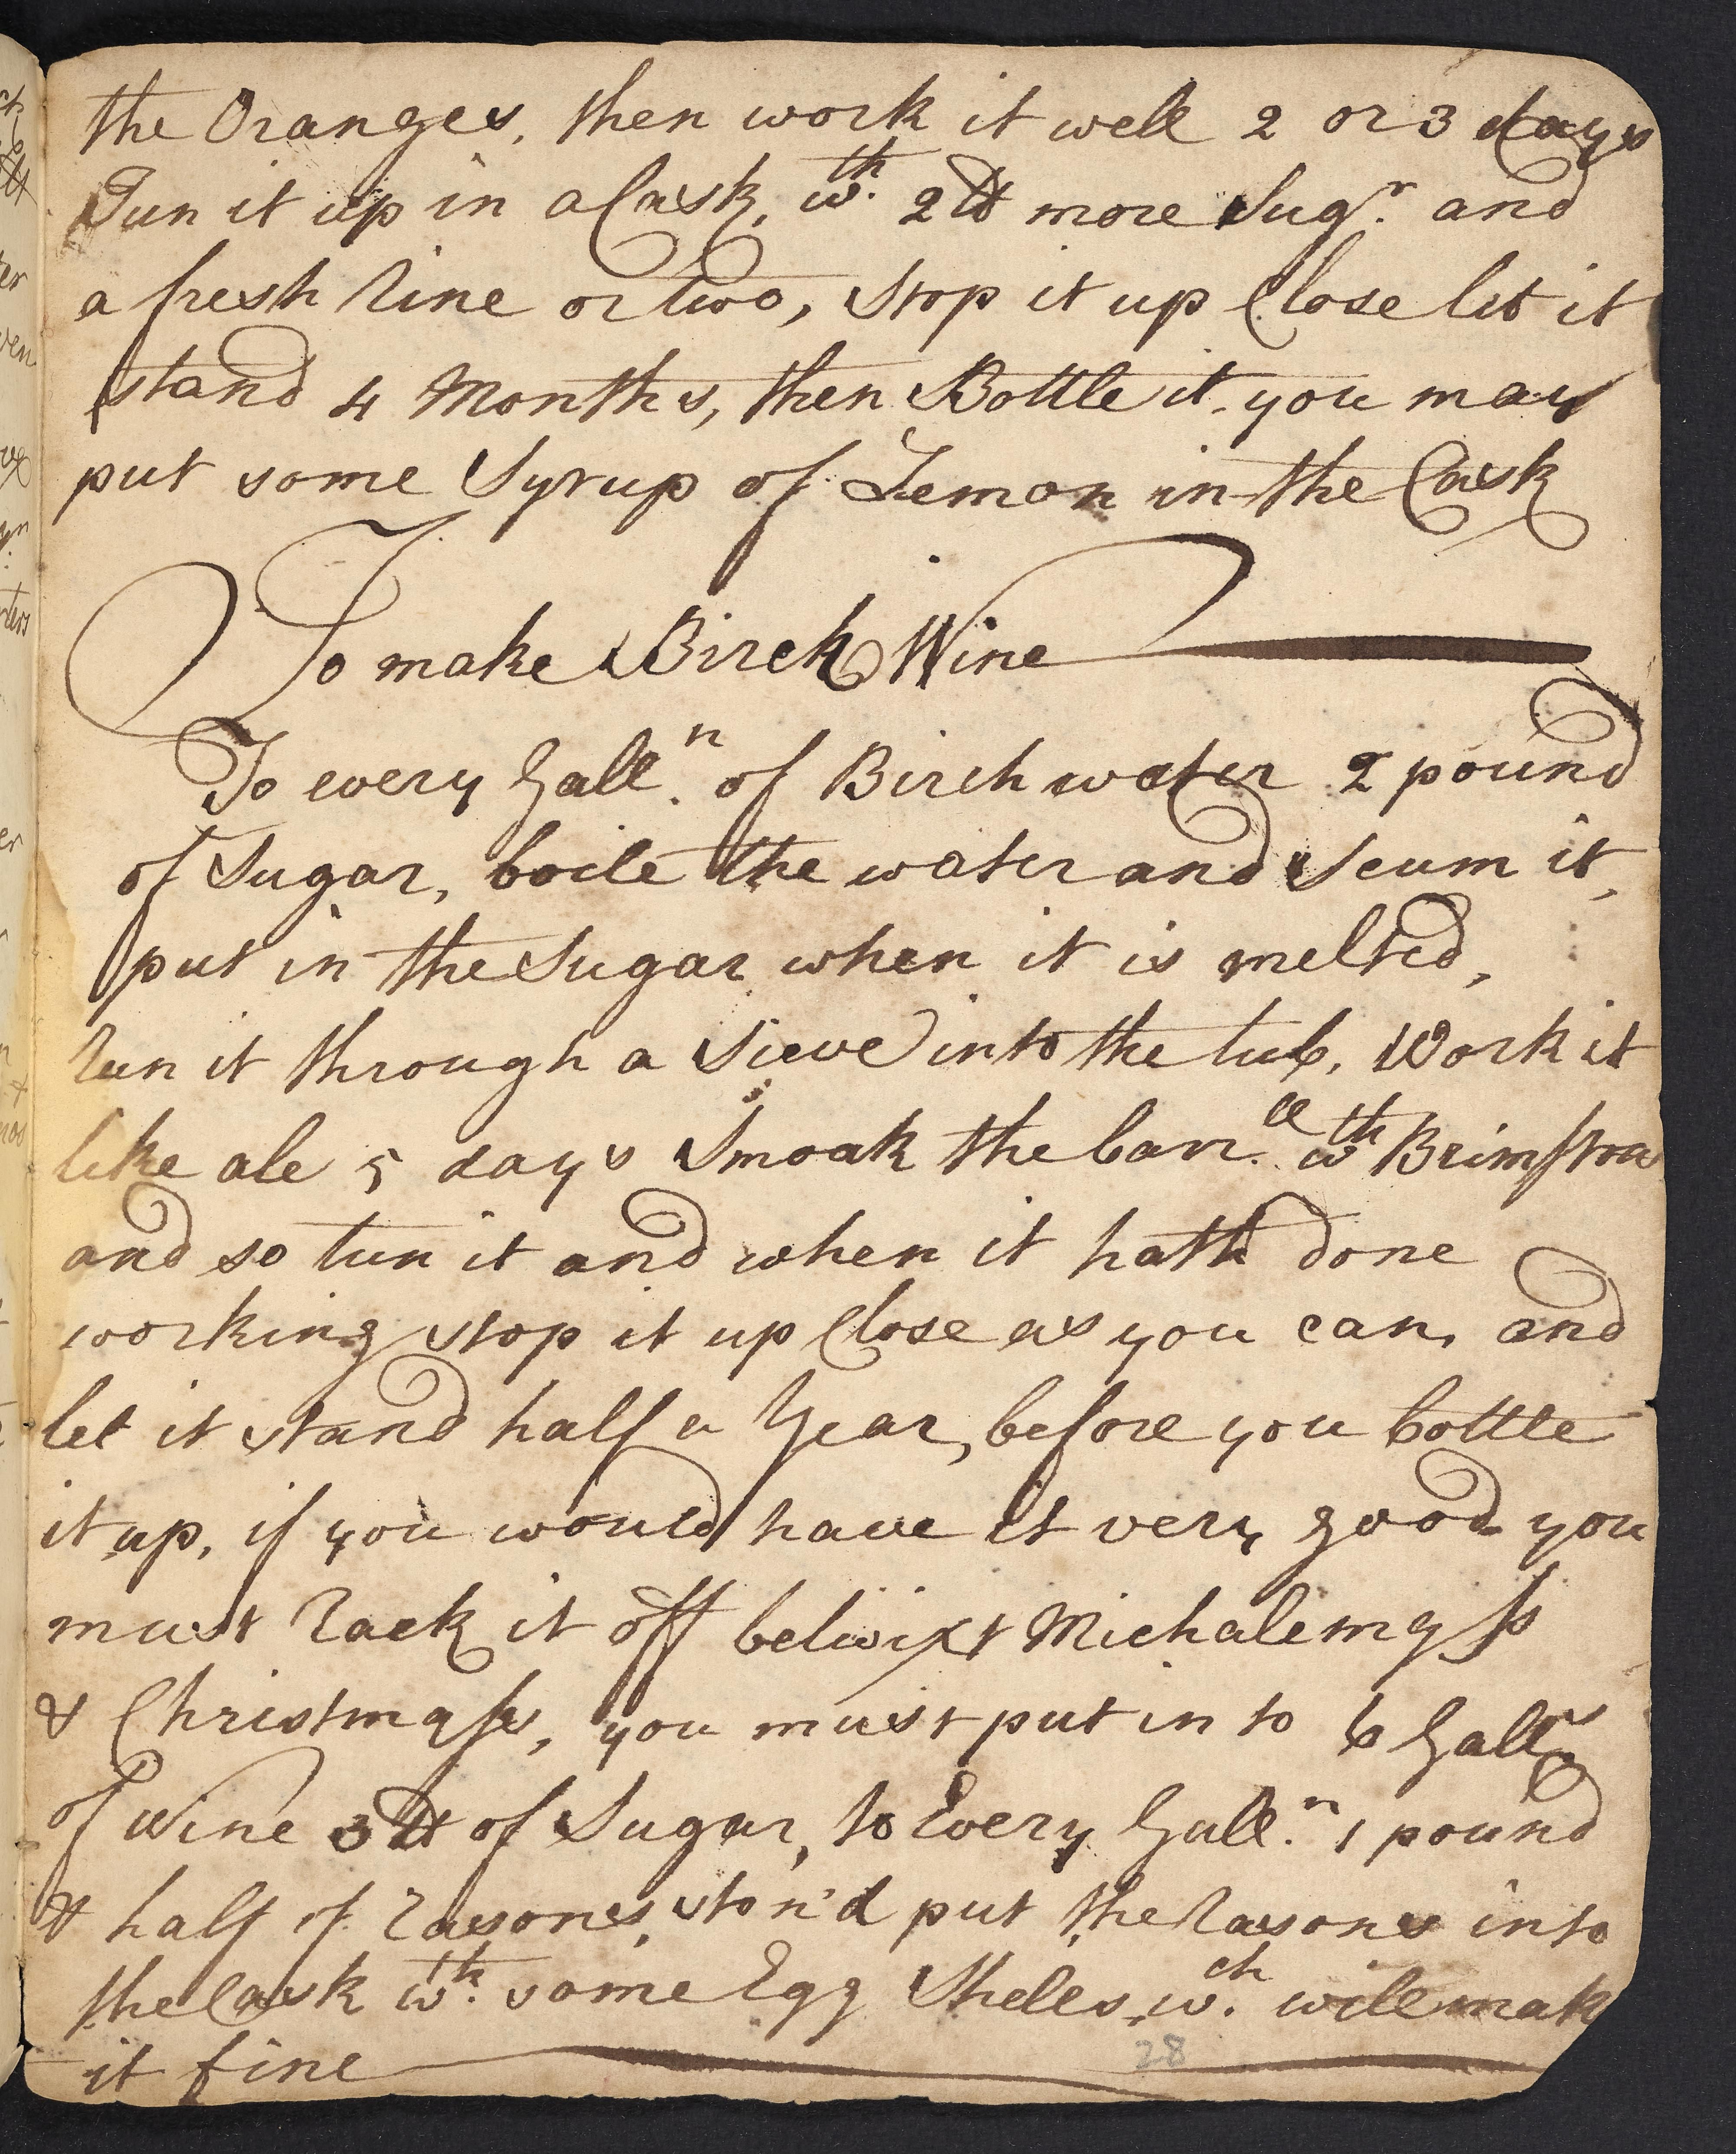 the Oranges, then work it well 2 or 3 days
Tun it up in a Cask, wth. 2 ℔ more Sugr. and
a fresh rine or two, Stop it up Close let it
stand 4 Months, then Bottle it. you may
put some Syrup of Lemon in the Cask
To make Birch Wine
To every Galln. of Birch water 2 pound
of Sugar, boile the water and Scum it,
put in the Sugar when it is melted,
run it through a Sieve into the tub, Work it
like ale 5 days Smoak the barrll. wth Brimston
and so tun it and when it hath done
working stop it up Close as you can, and
let it stand half a Year, before you bottle
it up, if you would have it very good you
must rack it off betwixt Michalemass
& Christmass, you must put in to 6 Galls
of Wine 3 ℔ of Sugar, to Every Galln. 1 pound
& half of rasones, ston'd put the rasones into
the Cask wth. some Egg Shells, wch. will mak
it fine
28